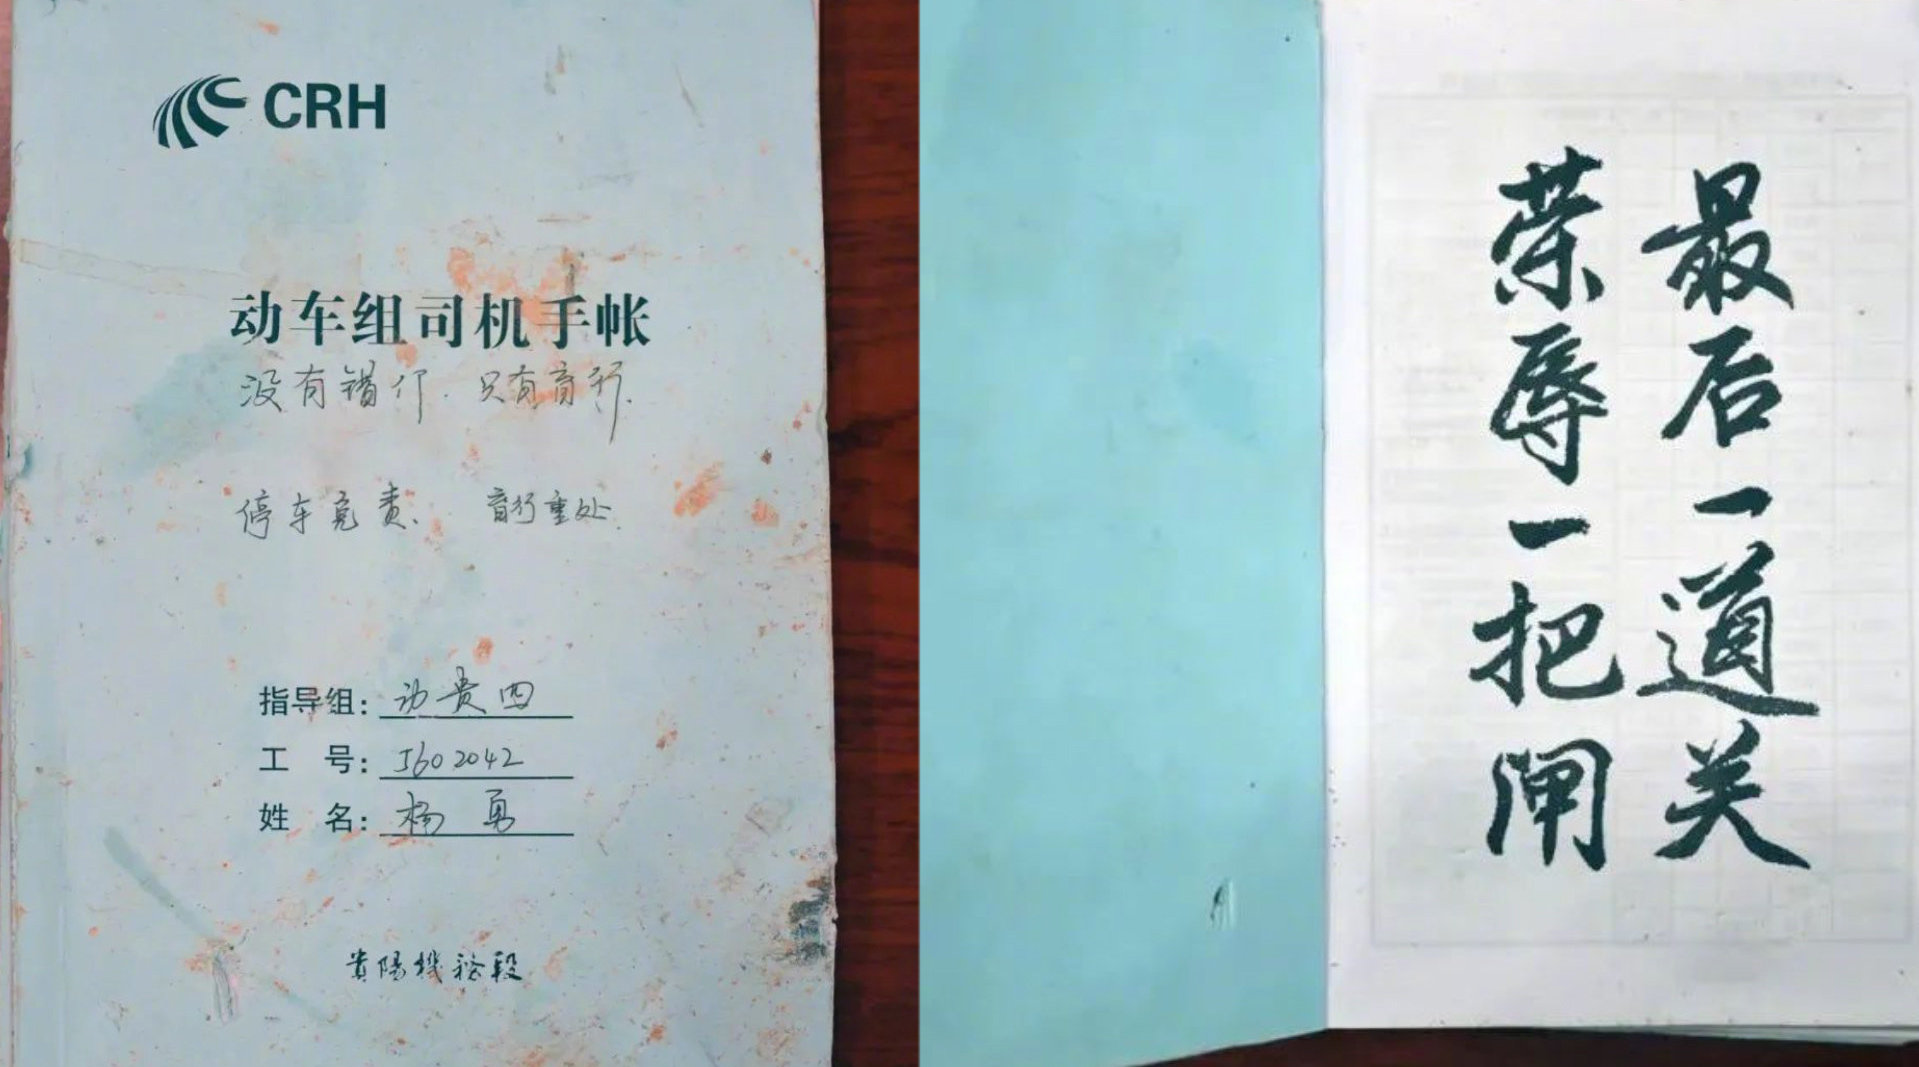 CRH
动车组司机手帐
没有错行. 只有盲行.
停车免责. 盲行重处.
指导组: 动贵四
工 号: J602042
姓 名: 杨勇
貴陽機務段
最后一道关
荣辱一把闸